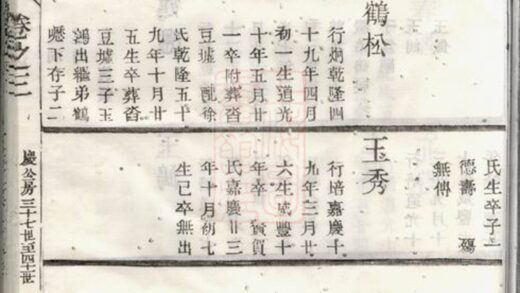 鶴松
行炯乾隆四
十九年四月
初一生道光
十年五月廿
一卒附葬沓
豆墟 配徐
氏乾隆五十
九年十月廿
五生卒葬沓
豆墟三子玉
鴻出繼弟鶴
下存子二
氏生卒子一
德壽 殤
無傳
玉秀
行培嘉慶十
九年三月廿
六生咸豐十
年卒 賓賀
氏嘉慶廿三
年十月初七
生已卒無出
慶公房三十七世至四十一世